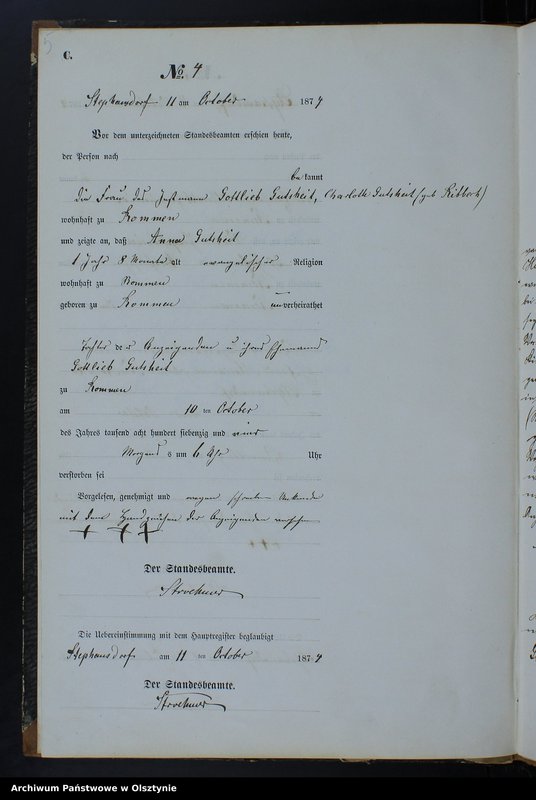 C.
No. 4
Stephansdorf 11 am October 1874
Vor dem unterzeichneten Standesbeamten erschien heute,
der Person nach
bekannt
die Frau des Instmann Gottlieb Gutzheit, Charlotte Gutzheit (geb
wohnhaft zu Kommen
und zeigte an, daß Anna Gutzheit
1 Jahr 8 Monate alt evangelischer Religion
wohnhaft zu Kommen
geboren zu Kommen unverheirathet
Tochter des Anzeigenden u ihres Ehemann
Gottlieb Gutzheit
zu Kommen
am 10 ten October
des Jahres tausend acht hundert siebenzig und vier
Morgens um 6 Uhr Uhr
verstorben sei
Vorgelesen, genehmigt und wegen
mit dem Handzeichen der Anzeigenden versehen
+ + +
Der Standesbeamte.
Die Uebereinstimmung mit dem Hauptregister beglaubigt
Stephansdorf am 11 ten October 1874
Der Standesbeamte.
Archiwum Państwowe w Olsztynie